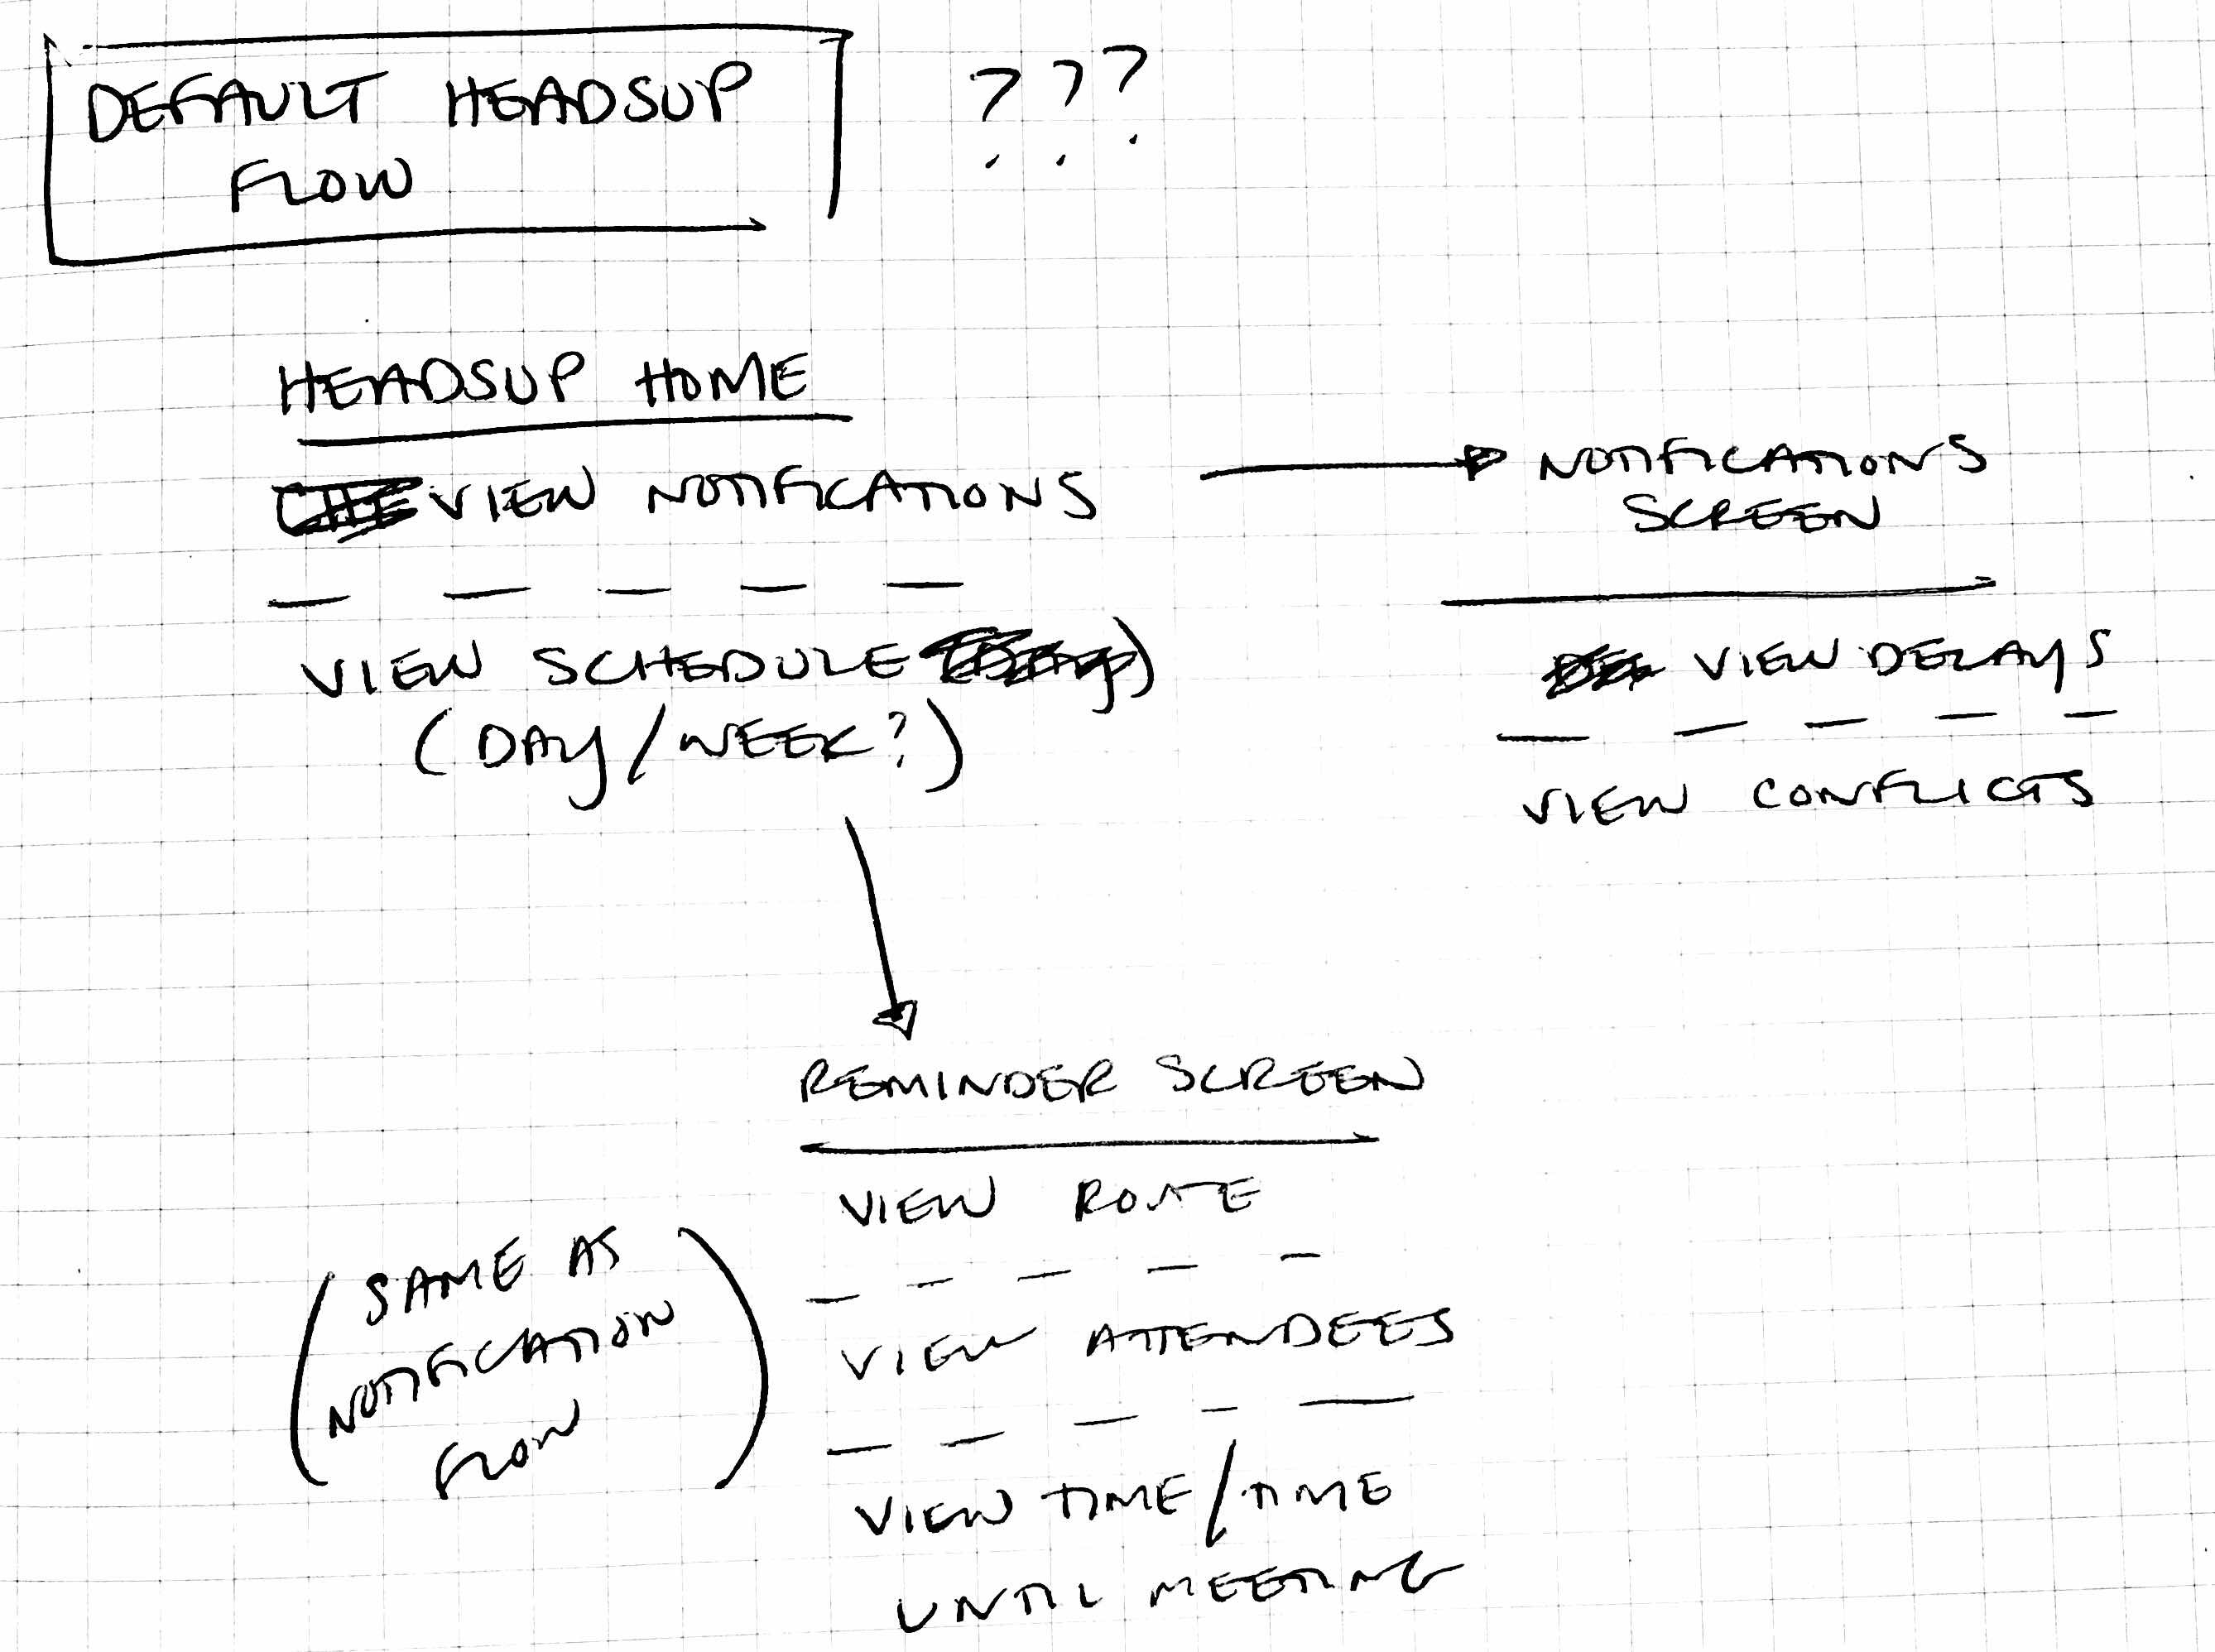 DEFAULT HEADSUP ???
FLOW
HEADSUP HOME
VIEW NOTIFICATIONS
VIEW SCHEDULE
(DAY/WEEK?)
NOTIFICATIONS
SCREEN
VIEW DELAYS
VIEW CONFLICTS
REMINDER SCREEN
VIEW ROUTE
VIEW ATTENDEES
VIEW TIME/TIME
UNTIL MEETING
(SAME AS
NOTIFICATION
FLOW)